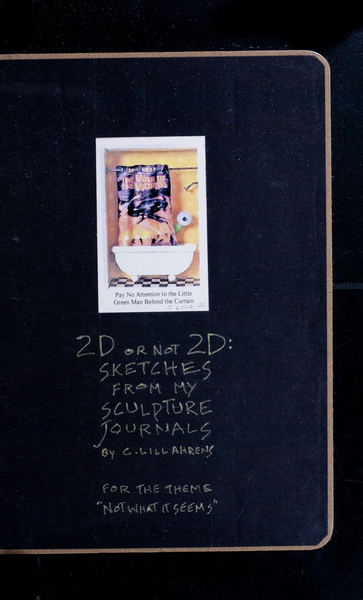 THE WAR OF
THE WORLDS
Pay No Attention to the Little
Green Man Behind the Curtain
2D OR NOT 2D:
SKETCHES
FROM MY
SCULPTURE
JOURNALS
BY C. LILL AHRENS
FOR THE THEME
"NOT WHAT IT SEEMS"